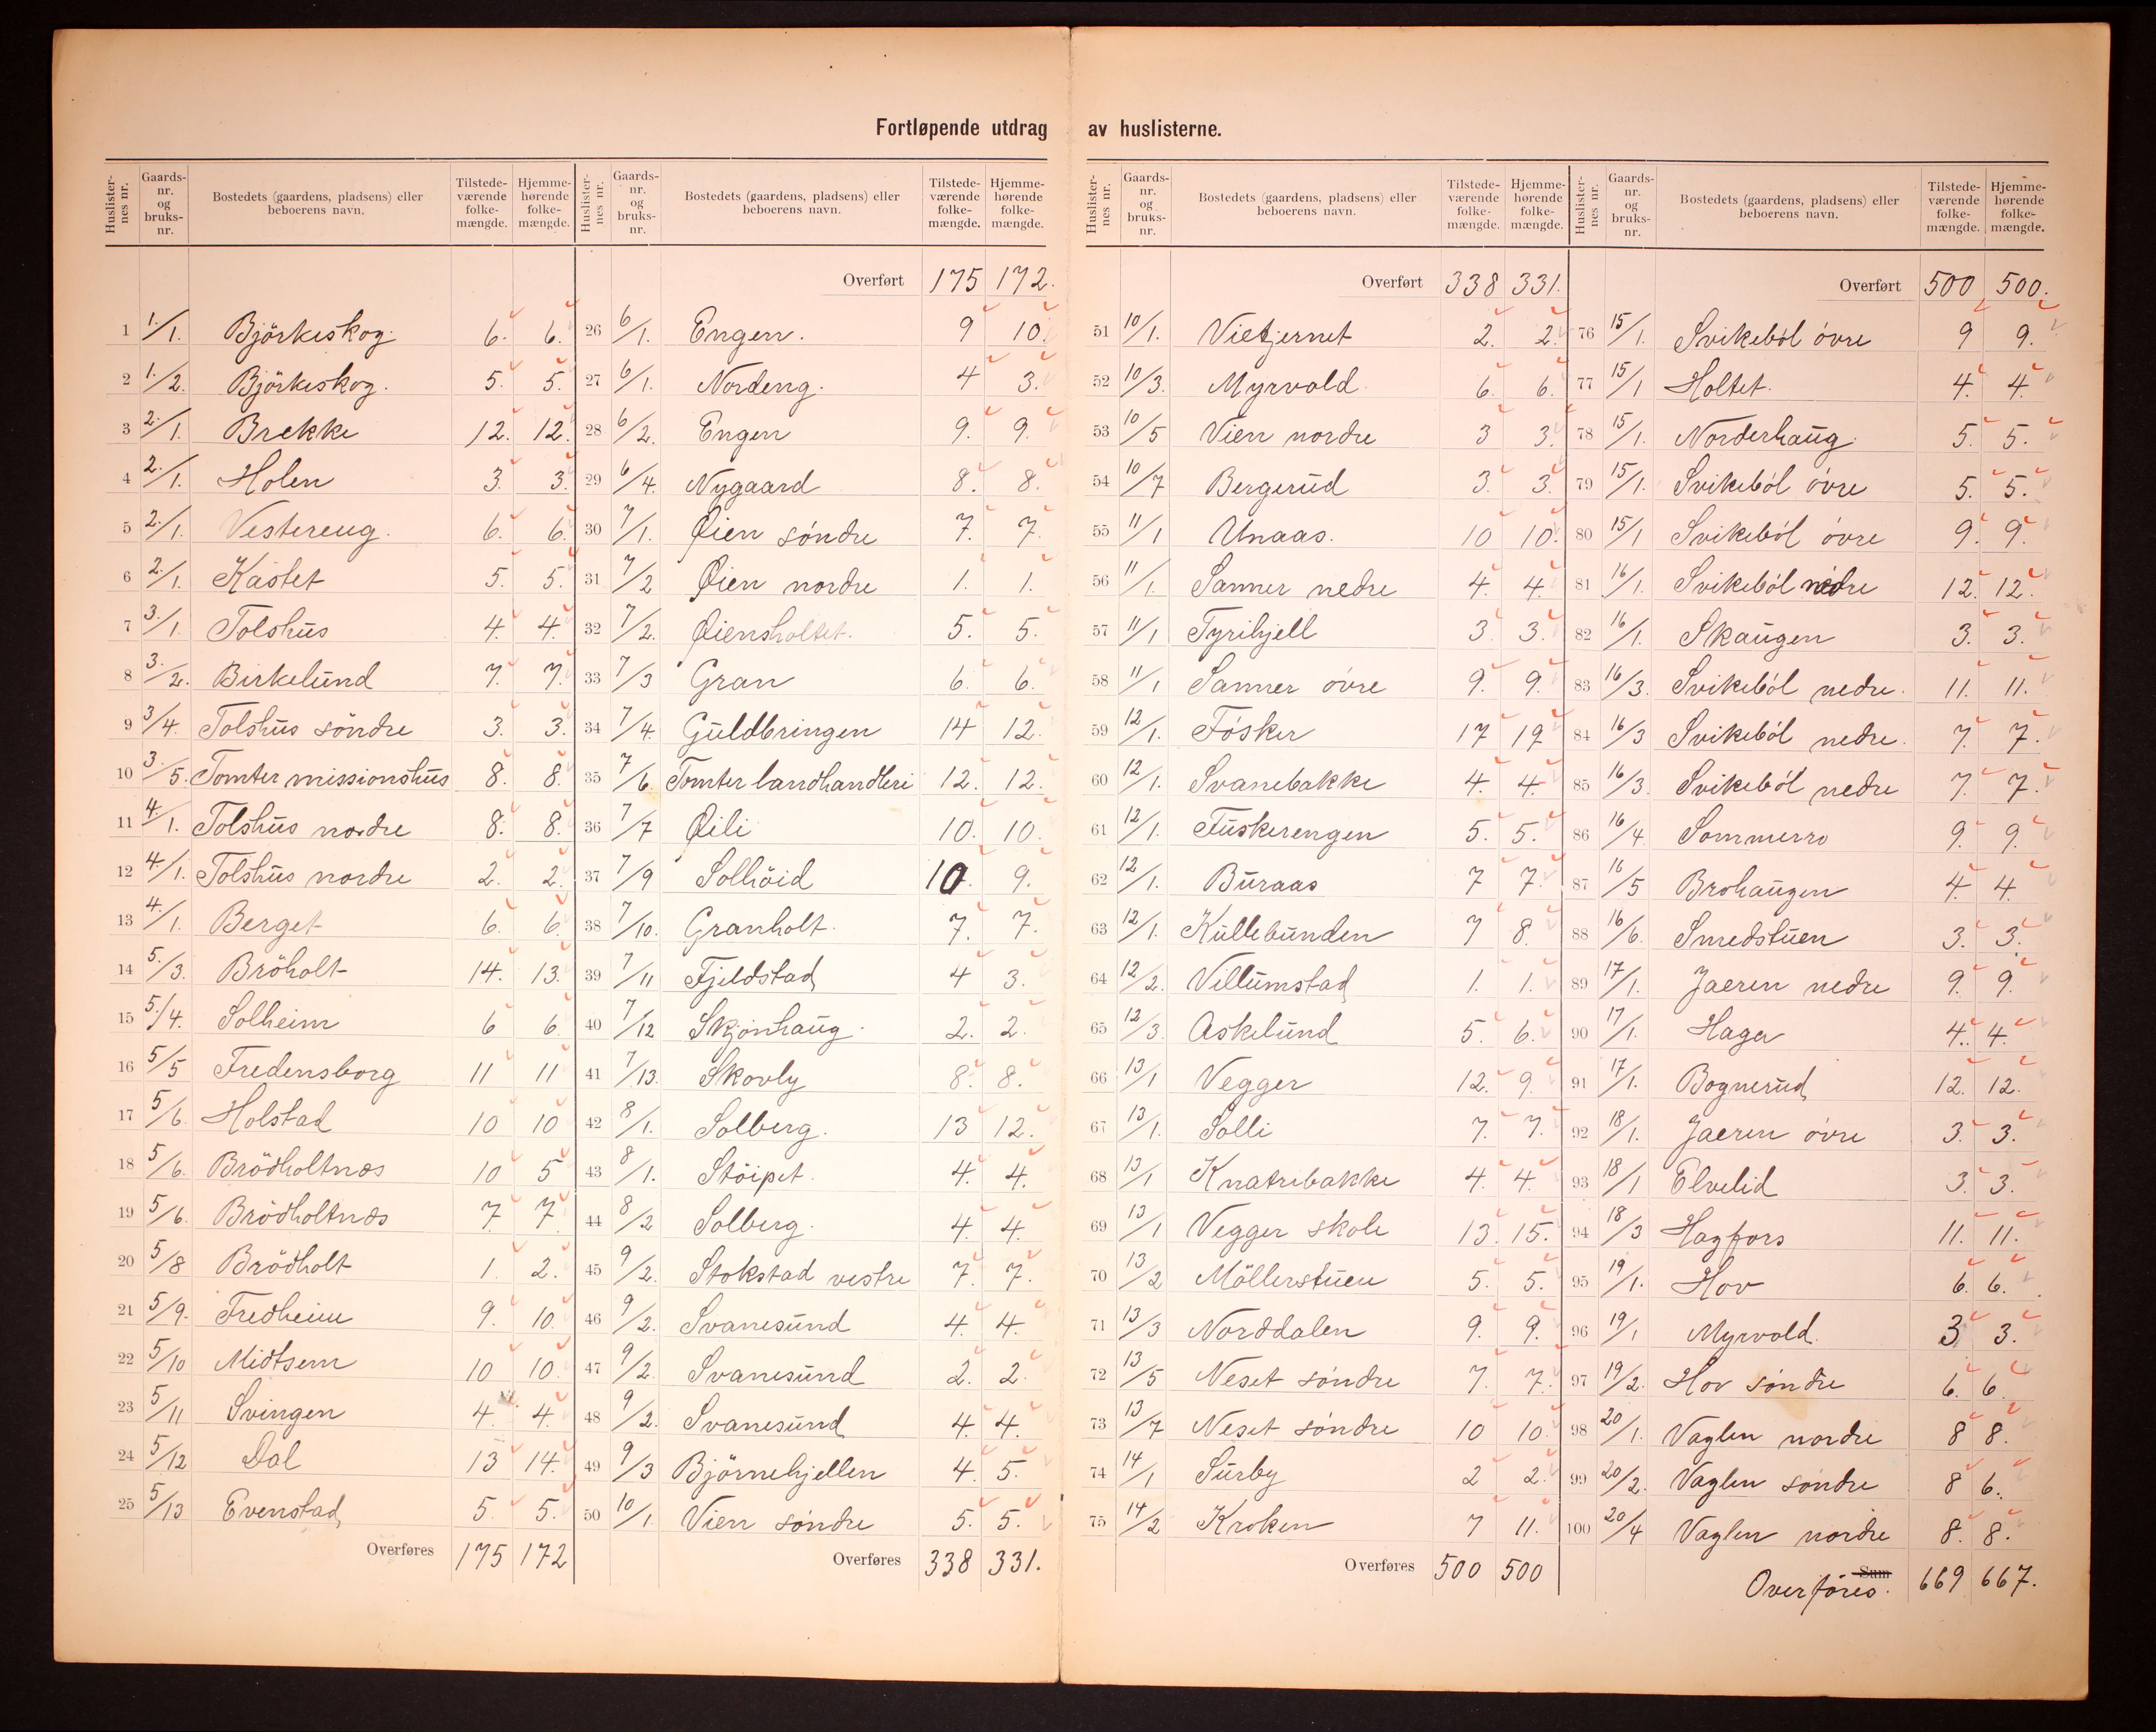 Fortløpende utdrag av huslisterne.
Huslisternes nr. | Gaards-nr. og bruks-nr. | Bostedets (gaardens, pladsens) eller beboerens navn. | Tilstedeværende folkemængde. | Hjemmehørende folkemængde.
1 1./1. Björkeskog. 6. 6.
2 1./2. Björkeskog. 5. 5.
3 2./1. Brekke 12. 12.
4 2./1. Holen 3. 3.
5 2./1. Vestereng. 6. 6.
6 2./1. Kastet 5. 5.
7 3./1. Tolshus 4. 4.
8 3./2. Birkelund 7. 7.
9 3/4. Tolshus söndre 3. 3.
10 3./5. Tomter missionshus 8. 8.
11 4./1. Tolshus nordre 8. 8.
12 4./1. Tolshus nordre 2. 2.
13 4./1. Berget 6. 6.
14 5./3. Bröholt 14. 13.
15 5./4. Solheim 6 6.
16 5/5 Fredensborg 11 11
17 5/6. Holstad 10 10
18 5/6. Brödholtnæs 10 5
19 5/6. Brödholtnæs 7. 7.
20 5/8 Brödholt 1. 2.
21 5/9. Fredheim 9. 10.
22 5/10 Midtsem 10 10.
23 5/11 Svingen 4. 4.
24 5/12 Dal 13 14.
25 5/13 Evenstad 5. 5.
Overføres 175 172
Huslisternes nr. | Gaards-nr. og bruks-nr. | Bostedets (gaardens, pladsens) eller beboerens navn. | Tilstedeværende folkemængde. | Hjemmehørende folkemængde.
Overført 175 172.
26 6/1. Engen. 9 10.
27 6/1. Nordeng. 4 3.
28 6/2. Engen 9. 9.
29 6/4. Nygaard 8. 8.
30 7/1. Øien söndre 7. 7.
31 7/2 Øien nordre 1. 1.
32 7/2. Øiensholtet. 5. 5.
33 7/3 Gran 6. 6.
34 7/4. Guldbringen 14 12.
35 7/6. Tomter landhandleri 12. 12.
36 7/7 Øili 10. 10.
37 7/9 Solhöid 10. 9.
38 7/10. Granholt. 7. 7.
39 7/11 Fjeldstad 4 3.
40 7/12 Skjönhaug. 2. 2.
41 7/13. Skovly 8. 8.
42 8/1. Solberg. 13 12.
43 8/1. Stöipet. 4. 4.
44 8/2 Solberg. 4. 4.
45 9/2. Stokstad vestre 7. 7.
46 9/2. Svanesund 4. 4.
47 9/2. Svanesund 2. 2.
48 9/2. Svanesund 4. 4.
49 9/3 Björnehjellen 4. 5.
50 10/1. Vien söndre 5. 5.
Overføres 338 331.
Huslisternes nr. | Gaards-nr. og bruks-nr. | Bostedets (gaardens, pladsens) eller beboerens navn. | Tilstedeværende folkemængde. | Hjemmehørende folkemængde.
Overført 338 331.
51 10/1. Vietjernet 2. 2.
52 10/3. Myrvold. 6. 6.
53 10/5 Vien nordre 3 3.
54 10/7 Bergerud 3. 3.
55 11/1 Unaas. 10 10.
56 11/1. Sanner nedre 4. 4.
57 11/1 Tyrihjell 3. 3.
58 11/1 Sanner övre 9. 9.
59 12/1. Fösker 17 19
60 12/1. Svanebakke 4. 4.
61 12/1. Fuskerengen 5. 5.
62 12/1. Buraas 7 7.
63 12/1. Kullebunden 7 8.
64 12/2. Villumstad 1. 1.
65 12/3. Askelund 5. 6.
66 13/1 Vegger 12. 9.
67 13/1. Solli 7. 7.
68 13/1 Knatrebakke 4. 4.
69 13/1 Vegger skole 13. 15.
70 13/2 Möllerstuen 5. 5.
71 13/3 Norddalen 9. 9.
72 13/5 Neset söndre 7. 7.
73 13/7 Neset söndre 10 10.
74 14/1 Surby 2 2.
75 14/2 Kroken 7 11.
Overføres 500 500
Huslisternes nr. | Gaards-nr. og bruks-nr. | Bostedets (gaardens, pladsens) eller beboerens navn. | Tilstedeværende folkemængde. | Hjemmehørende folkemængde.
Overført 500 500.
76 15/1. Svikeböl övre 9 9.
77 15/1 Holtet. 4. 4.
78 15/1. Norderhaug. 5. 5.
79 15/1. Svikeböl övre 5. 5.
80 15/1 Svikeböl övre 9. 9.
81 16/1. Svikeböl nedre 12. 12.
82 16/1. Skaugen 3. 3.
83 16/3. Svikeböl nedre. 11. 11.
84 16/3 Svikeböl nedre. 7. 7.
85 16/3. Svikeböl nedre 7. 7.
86 16/4 Sommerro 9. 9.
87 16/5 Brohaugen 4. 4.
88 16/6. Smedstuen 3. 3.
89 17/1. Jaeren nedre 9. 9.
90 17/1. Haga 4. 4.
91 17/1. Bognerud 12. 12.
92 18/1. Jaeren övre 3. 3.
93 18/1 Elvelid 3. 3.
94 18/3 Hagfors 11. 11.
95 19/1. Hov 6. 6.
96 19/1 Myrvold. 3 3.
97 19/2. Hov söndre 6. 6.
98 20/1. Vaglen nordre 8 8.
99 20/2. Vaglen söndre 8 6.
100 20/4 Vaglen nordre 8. 8.
Sum
Overföres. 669 667.